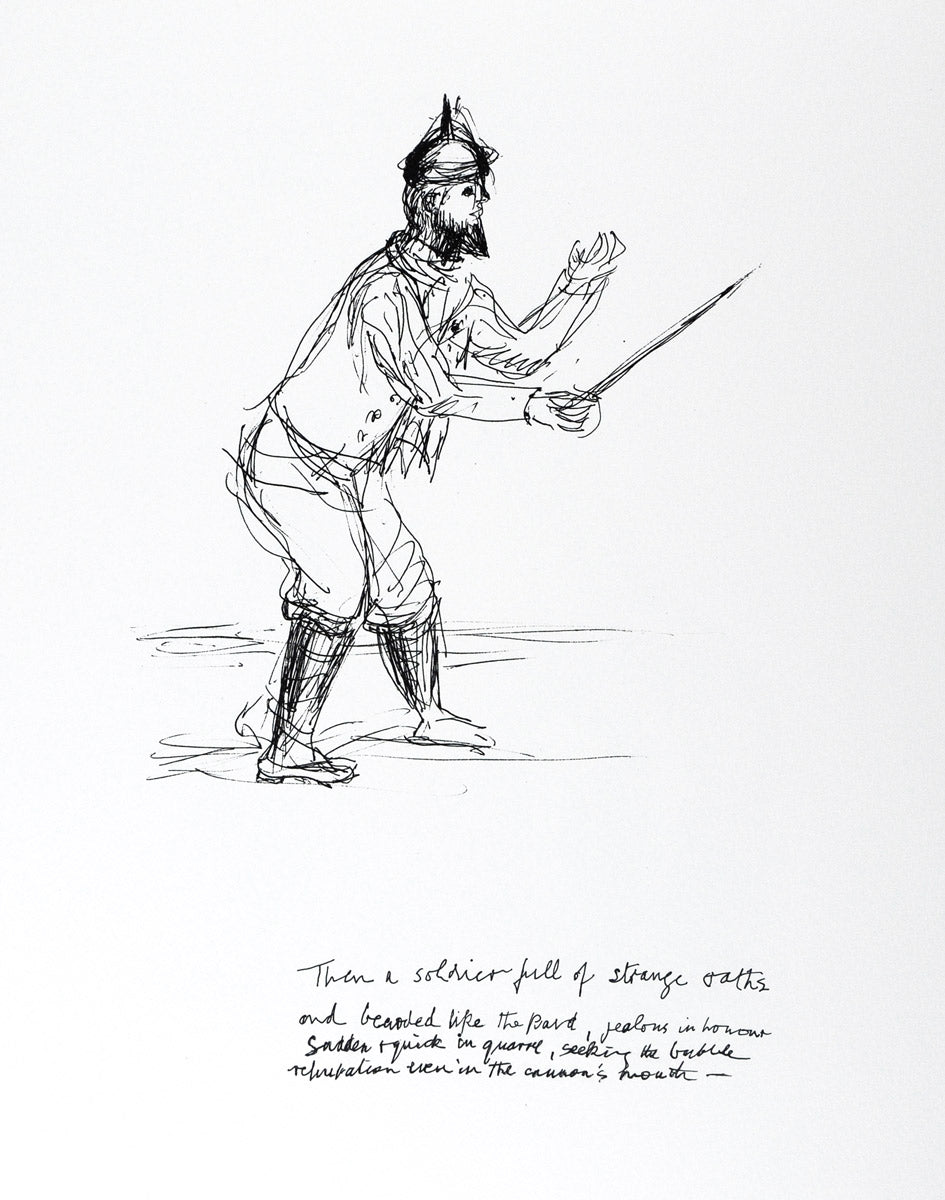 Then a soldier full of strange oaths
and bearded like the Pard, jealous in honour
Sudden + quick in quarrel, seeking the bubble
reputation even in the cannon's mouth —